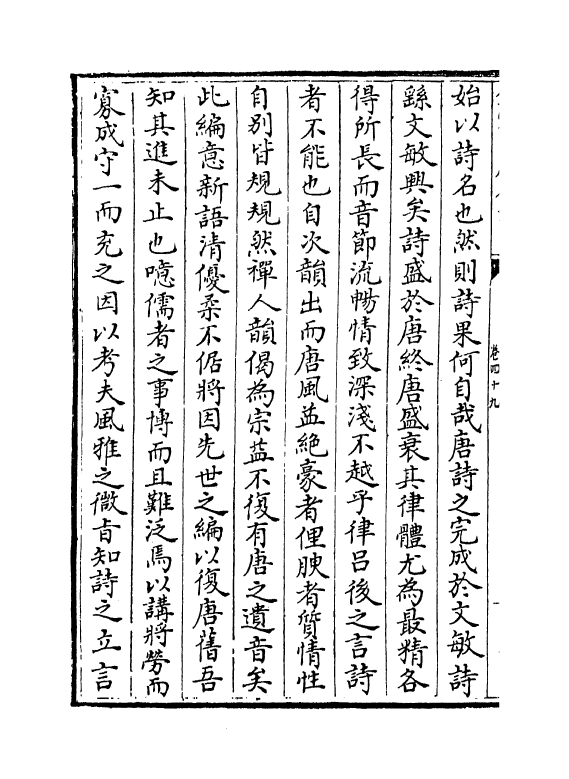 始以詩名也然則詩果何自哉唐詩之完成於文敏詩
繇文敏興矣詩盛於唐終唐盛衰其律體尤為最精各
得所長而音節流暢情致深淺不越乎律呂後之言詩
者不能也自次韻出而唐風益絶豪者俚腴者質情性
自别皆規規然禪人韻偈為宗益不復有唐之遺音矣
此編意新語清優柔不倨將因先世之編以復唐舊吾
知其進未止也噫儒者之事博而且難泛焉以講將勞而
寡成守一而充之因以考夫風雅之微旨知詩之立言
卷四十九